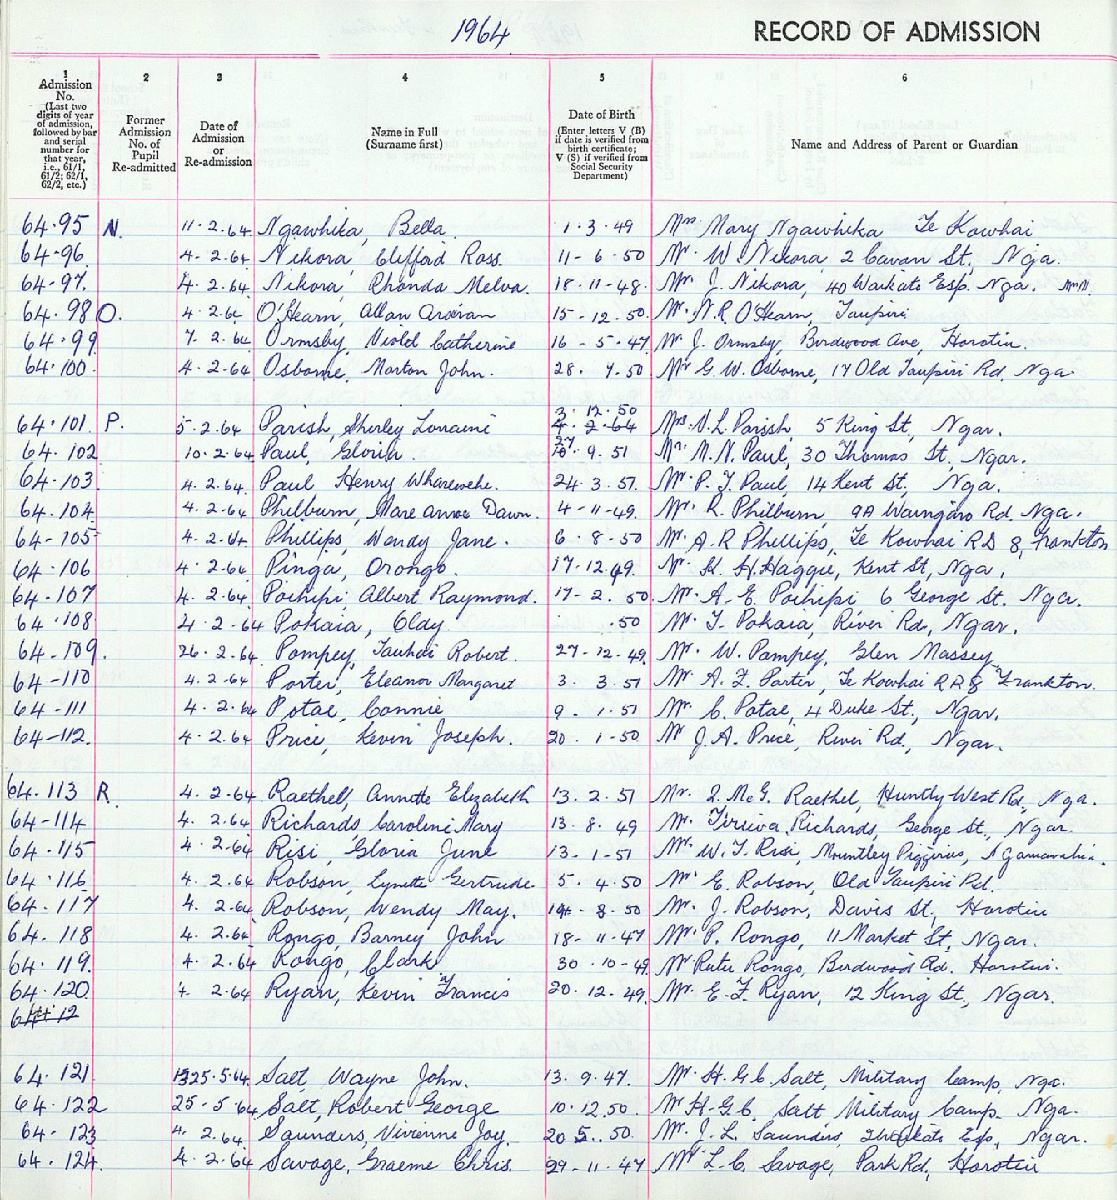 1964 RECORD OF ADMISSION
1 2 3 4 5 6
Admission No. (Last two digits of year of admission, followed by bar and serial number for that year, i.e., 61/1, 61/2; 62/1, 62/2, etc.)
Former Admission No. of Pupil Re-admitted
Date of Admission or Re-admission
Name in Full (Surname first)
Date of Birth (Enter letters V (B) if date is verified from birth certificate; V (S) if verified from Social Security Department)
Name and Address of Parent or Guardian
64·95 N. 11·2·64 Ngawhika, Bella. 1·3·49 Mrs Mary Ngawhika Te Kowhai
64-96 4·2·64 Nikora, Clifford Ross 11-6·50 Mr. W. Nikora, 2 Cavan St, Nga.
64-97. 4·2·64 Nikora, Rhonda Melva. 18·11·48. J. Nikora, 40 Waikato Esp. Nga.
64·98 O. 4·2·64 O'Hearn, Allan 15-12·50. Mr. N.R. O'Hearn, Taupiri
64·99 7·2·64 Ormsby, Violet Catherine 16-5·47 Mr J. Ormsby, Birdwood Ave, Horotiu.
64·100. 4·2·64 Osborne, Morton John. 28·7·50 Mr G. W. Osborne, 17 Old Taupiri Rd, Nga.
3·12·50
64·101. P. 5·2·64 Parish, Shirley Lorraine 4·2·64 Mrs V.L Parish 5 King St, Ngar.
64·102 10·2·64 Paul, Gloria. 27 ·9·51 M. N. Paul, 30 Thomas St, Ngar.
64·103 4·2·64 Paul Henry 24·3·51 Mr. P. T. Paul, 14 Kent St, Nga.
64·104 4·2·64 Philburn, Mareanne Dawn. 4-11-49. Mr. R. Philburn, 9A Waingaro Rd. Nga.
64-105 4·2·64 Phillips, Wendy Jane. 6·8·50 Mr A.R Phillips, Te Kowhai RD 8, Frankton
64·106 4·2·64 Pinga, Orongo. 17·12·49. Mr. H. Haggie, Kent St, Nga.
64-107 4·2·64 Poihipi, Albert Raymond. 17-2·50. Mr. A. E. Poihipi 6 George St. Nga.
64·108 4·2·64 Pokaia, Clay ·50 Mr T. Pokaia, River Rd, Ngar.
64-109. 26·2·64 Pompey, Tauhei Robert. 27-12-49. Mr. W. Pompey, Glen Massey
64-110 4·2·64 Porter, Eleanor Margaret 3·3·51 Mr A. F. Porter, Te Kowhai RD 8 Frankton.
64-111 4·2·64 Potae, Connie 9·1·51 Mr. C. Potae, 4 Duke St., Ngar.
64-112. 4·2·64 Price, Kevin Joseph. 20·1-50 Mr J.A. Price, River Rd, Ngar.
64·113 R. 4·2·64 Raethell, Annette Elizabeth 13·2·51 Mr. McG. Raethel, Huntly West Rd, Nga.
64-114 4·2·64 Richards Caroline Mary 13·8·49 Mr. Richards, George St, Ngar.
64-115 4·2·64 Risi, Gloria June 13-1-51 Mr. W. T. Risi, Piggeries,
64·116 4·2·64 Robson, Lynette Gertrude 5·4·50 Mr E. Robson, Old Taupiri Rd.
64-117 4·2·64 Robson, Wendy May. 14-8-50 Mr. J. Robson, Davis St, Horotiu
64·118 4·2·64 Rongo, Barney John 18-11-47 Mr P. Rongo, 11 Market St, Ngar.
64·119. 4·2·64 Rongo, Clark 30·10-49 Mr Rutu Rongo, Birdwood Rd. Horotiu.
64·120 4·2·64 Ryan, Kevin Francis 20·12·49. Mr. E. F. Ryan, 12 King St, Ngar.
64·12
64·121 25·5·64 Salt, Wayne John. 13·9·47. Mr. H.G.C. Salt, Military Camp, Nga.
64·122 25-5·64 Salt, Robert George 10·12·50. Mr H.G.C. Salt Military Camp. Nga.
64·123 4·2·64 Saunders, Vivienne Joy. 20 5·50. Mr. J. L. Saunders, Waikato Esp, Ngar.
64·124. 4·2·64 Savage, Graeme Chris. 29-11-47 Mr L.C. Savage, Park Rd, Horotiu